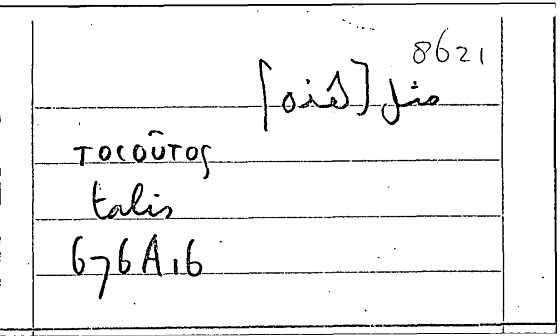 8621
مثل [هذه]
τοσοῦτος
talis
676A16